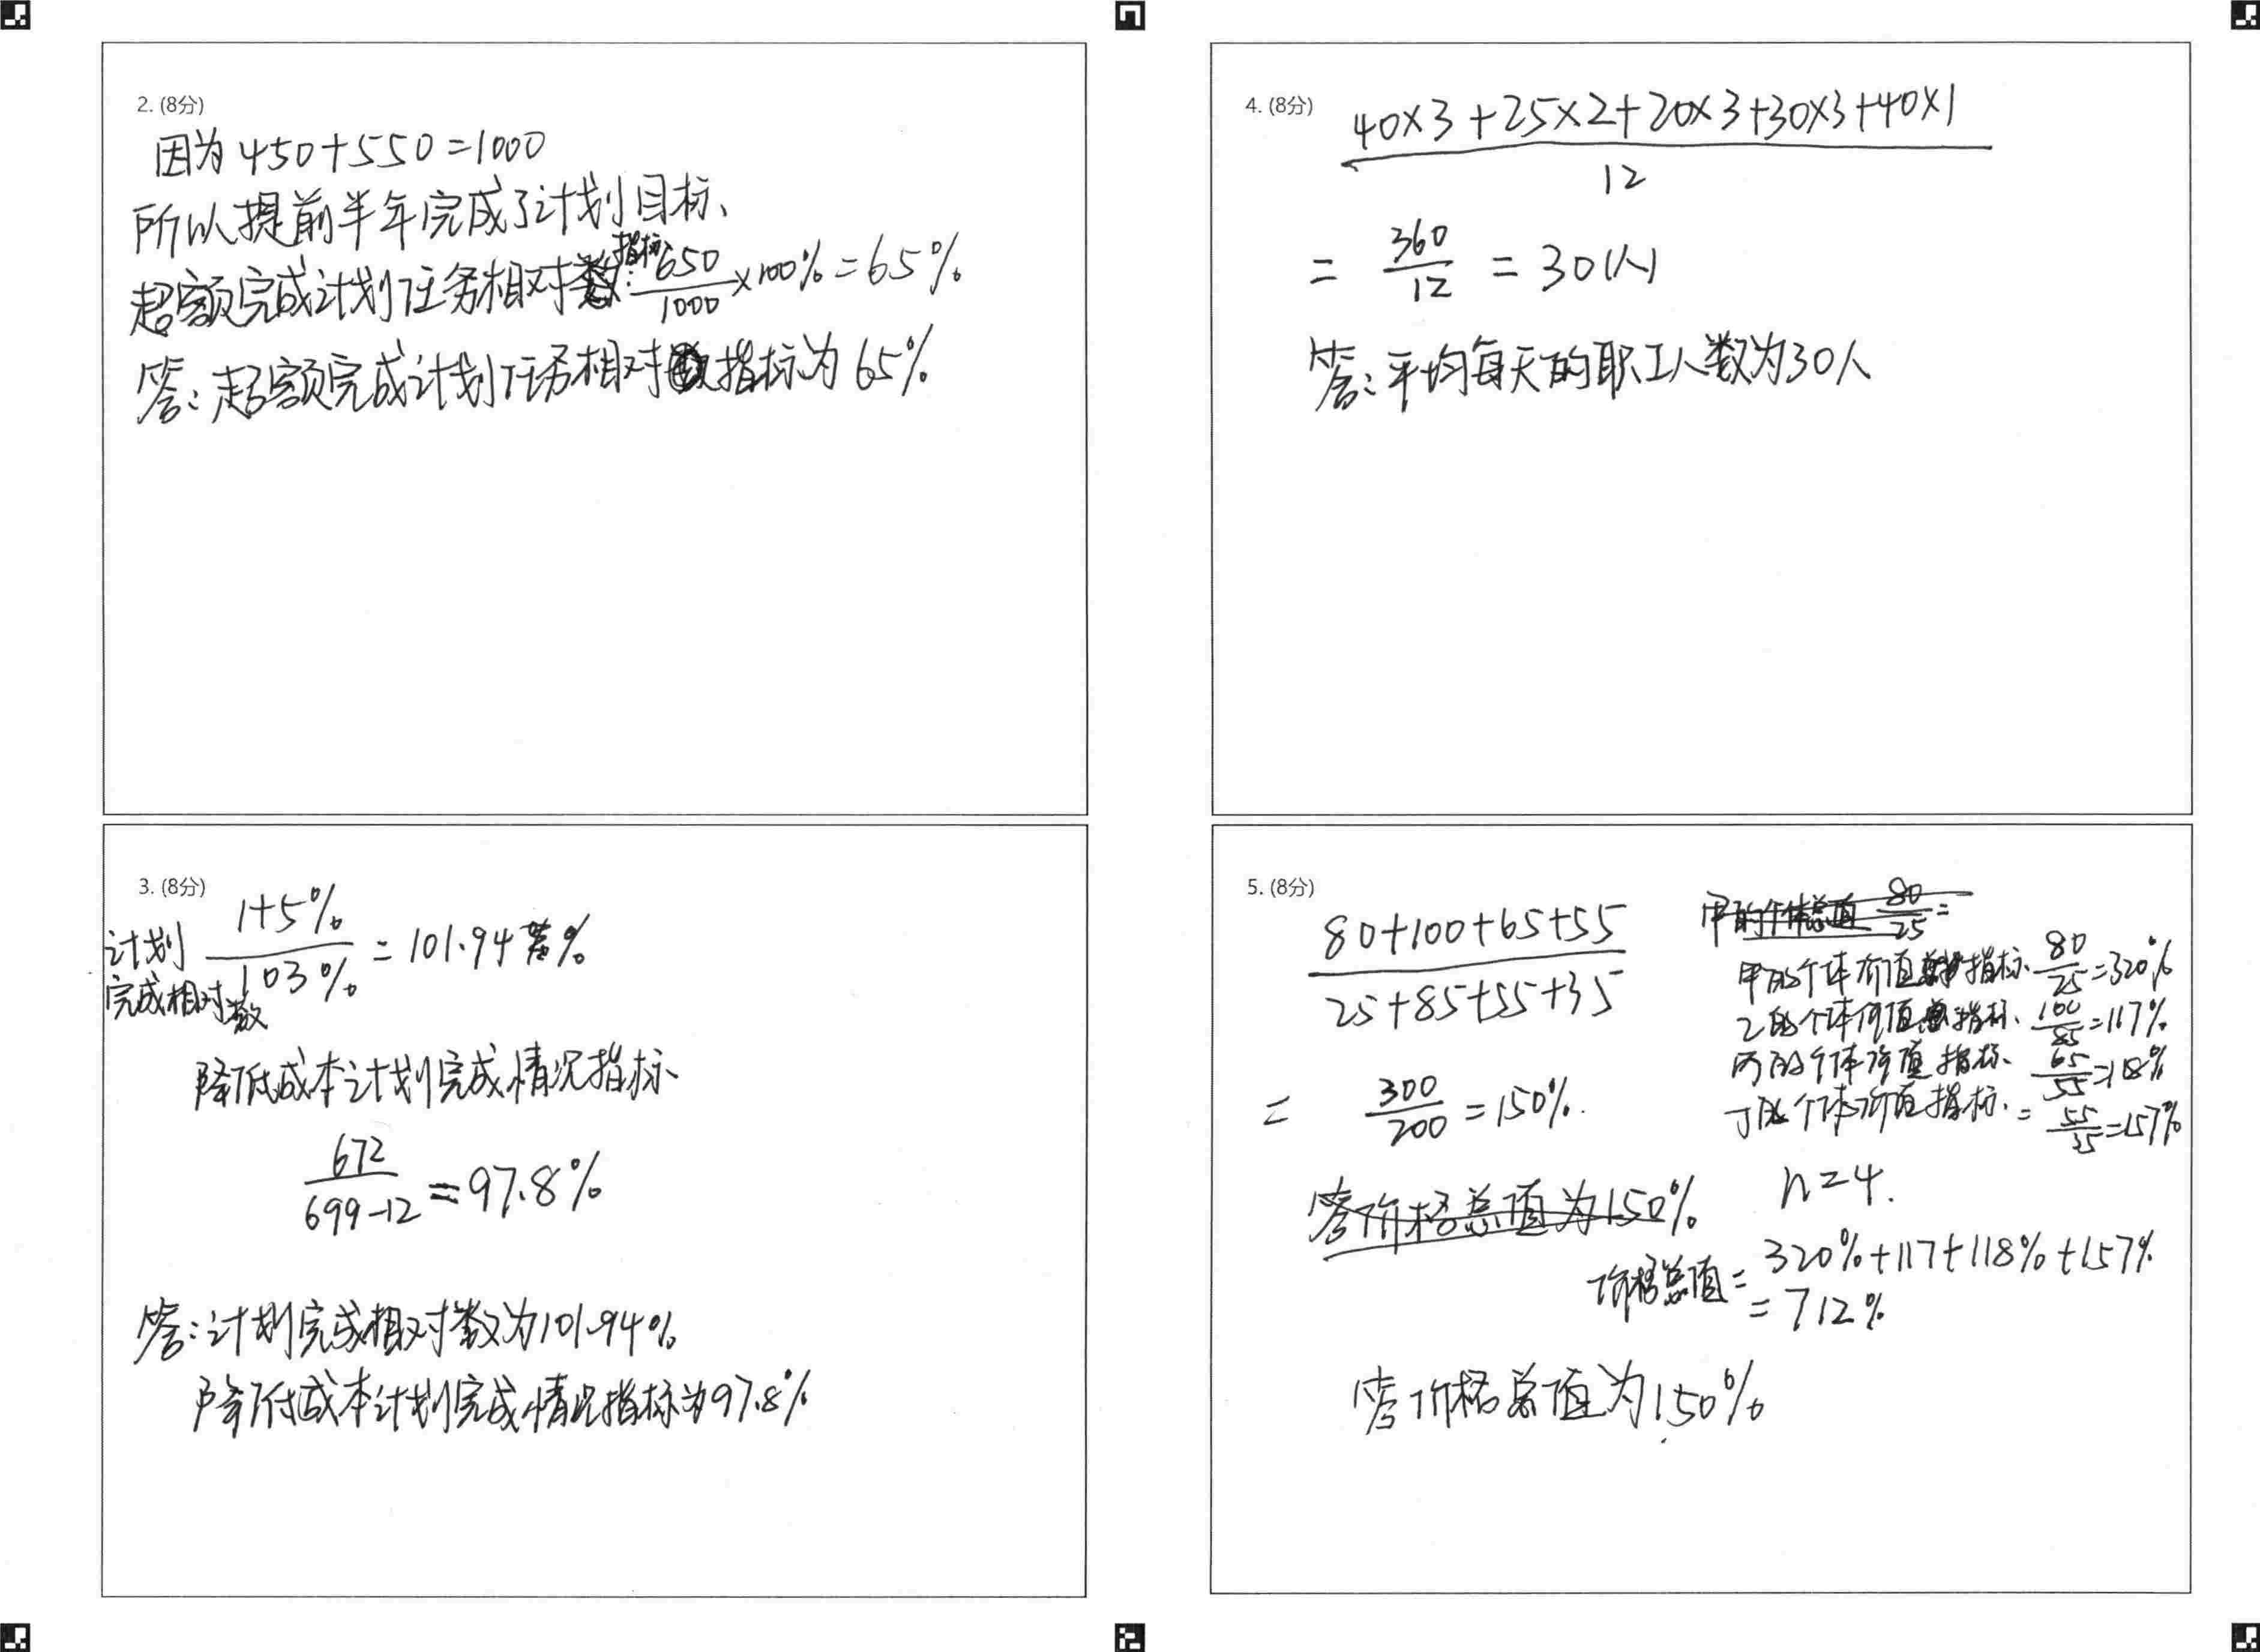 2. (8分)
因为 450+550=1000
所以提前半年完成了计划目标、
超额完成计划任务相对指标: 650/1000 ×100% = 65%
答: 超额完成计划任务相对指标为 65%
3. (8分)
计划完成相对数 1+5%/103% = 101.94%
降低成本计划完成情况指标
672/699-12 = 97.8%
答: 计划完成相对数为101.94%
降低成本计划完成情况指标为97.8%
4. (8分)
40×3+25×2+20×3+30×3+40×1/12
= 360/12 = 30(人)
答: 平均每天的职工人数为30人
5. (8分)
80+100+65+55/25+85+55+35
= 300/200 = 150%.
答价格总值为150%
甲的个体总值 80/25 =
甲的个体价值指标、80/25=320%
乙的个体价值指标、100/85=117%
丙的个体价值指标、65/55=118%
丁的个体价值指标、= 55/35=157%
n=4.
价格总值= 320%+117+118%+157%
= 712%
答价格总值为150%